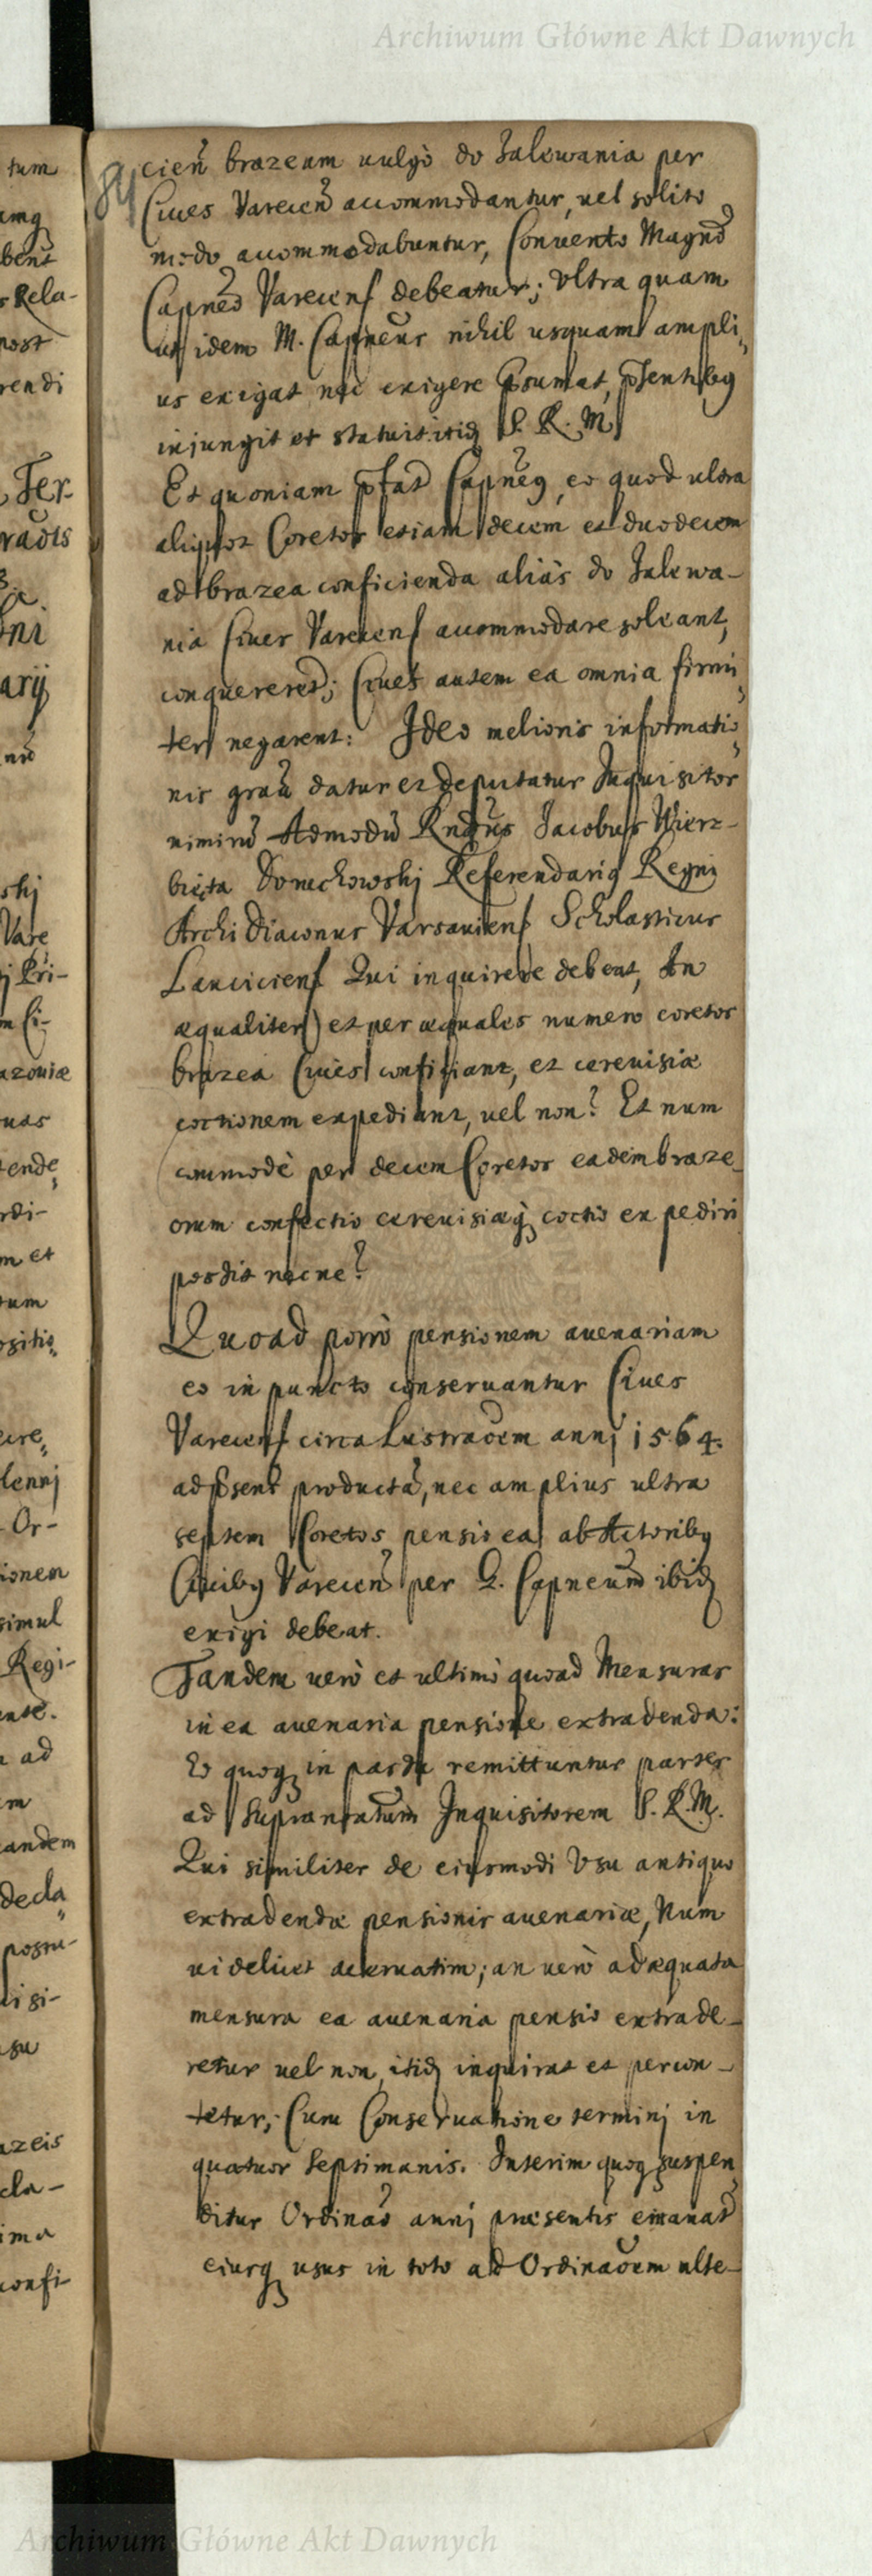 Archiwum Główne Akt Dawnych
84
cieñ brazeum uulgò do Zalewania per
Ciues Vareceñ accommodantur, uel solito
modo accommodabuntur, Conuento Magnō
Capneō Varecens debeatur; Vltra quam
ut idem M. Capneus nihil usquam ampli„
us exigat nec exigere p̄sumat, p̄sentibus
injungit et statuit itidē S. R. M.
Et quoniam p̄fat Capneus, eo quod ultra
aliquot Coretos etiam decem et duodecem
ad brazea conficienda aliàs do Zalewa-
nia Ciues Varecens accommodare soleant,
conquereret; Ciues autem ea omnia firmi„
ter negarent: Ideo melioris informatio„
nis graū datur et deputatur Inquisitor
nimirū Admodū Rndūs Jacobus Wierz-
bięta Doruchowskj Referendarius Regni
Archidiaconus Varsauiens Scholasticus
Lanciciens Qui inquirere debeat, An
æqualiter et per æquales numero coretos
brazea Ciues conficiant, et cereuisiæ
coctionem expediant, uel non? Et num
commodè per decem Coretos eadem braze„
orum confectio cereuisiæq coctio expediri
possit necne?
Quoad porrò pensionem auenariam
eo in puncto conseruantur Ciues
Varecens circa Lustraōem annj 1564.
ad p̄sens productā, nec amplius ultra
septem Coretos pensio ea ab Actoribus
Ciuibus Vareceñ per G. Capneum ibidē
exigi debeat.
Tandem uerò et ultimò quoad Mensuras
in ea auenaria pensione extradenda:
Eo quoq in passu remittuntur partes
ad Supranotatum Inquisitorem S. R. M.
Qui similiter de eiusmodi Vsu antiquo
extradendæ pensionis auenariæ, Num
uidelicet aceruatim; an uerò adæquata
mensura ea auenaria pensio extrade-
retur uel non, itidē inquirat et percon-
tetur; Cum Conseruatione terminj in
quatuor Septimanis. Interim quoq suspen„
ditur Ordināo annj præsentis emanat
eiusq usus in toto ad Ordinaōem ulte-
Archiwum Główne Akt Dawnych